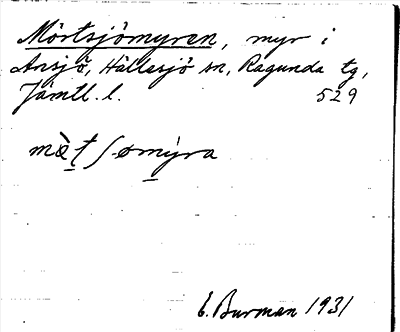 Mörtsjömyren, myr i
Ansjö, Hällesjö sn, Ragunda tg,
Jämtl. l. 529
E. Burman 1931